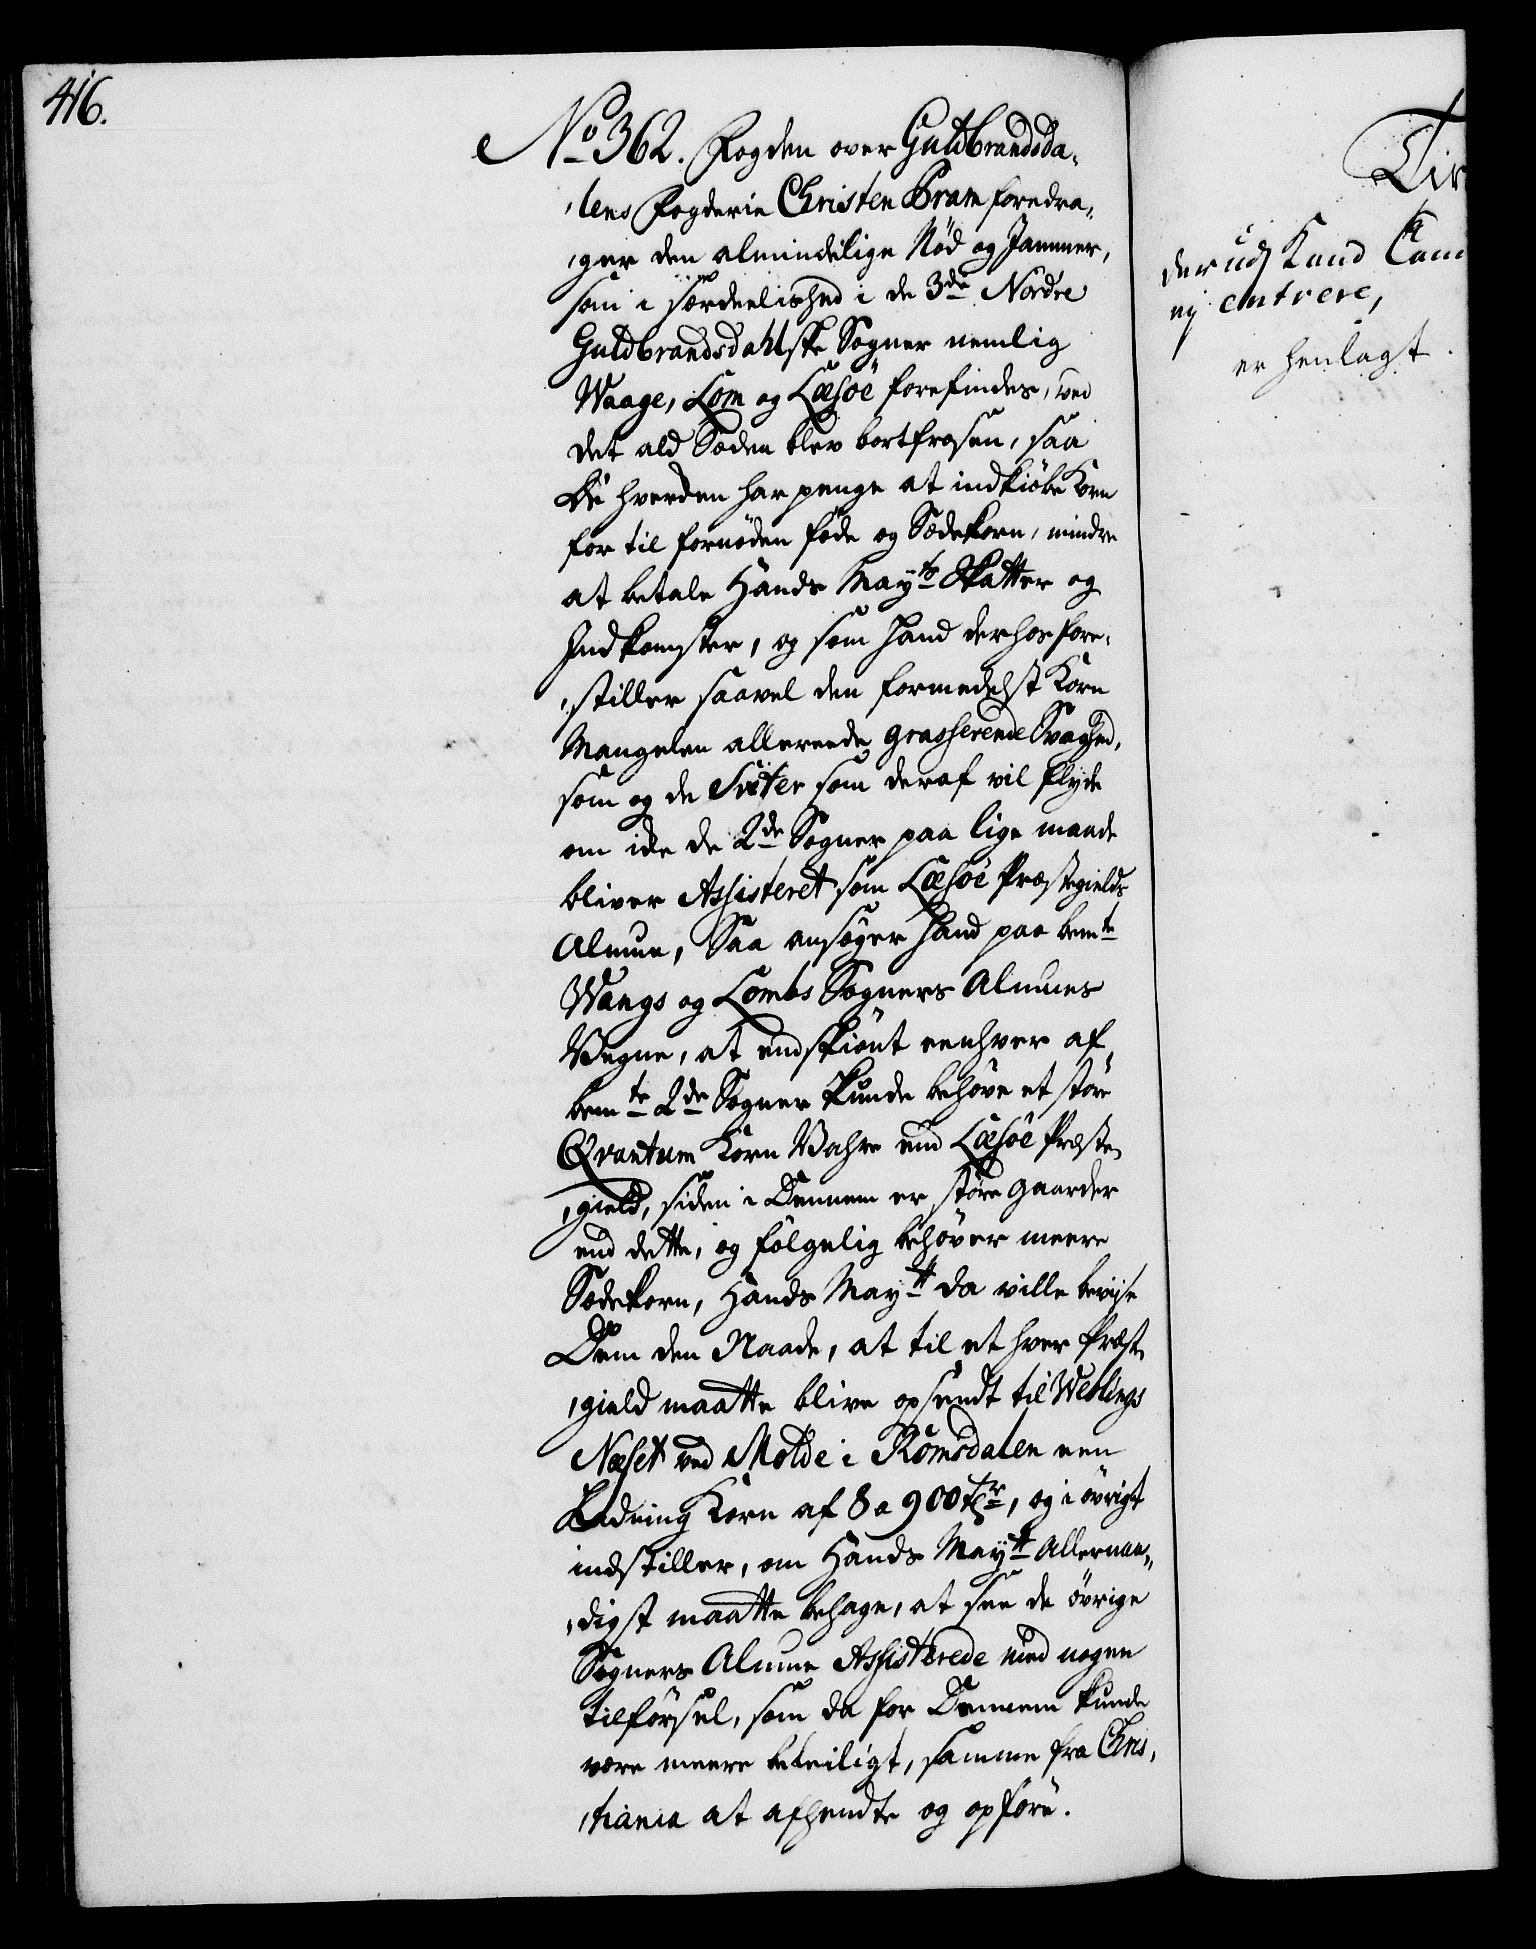 416.
No 362. Fogden over Guldbrandsda-
lens Fogderie Christen Pram foredra-
ger den almindelige Nød og Jammer,
som i særdeelished i de 3de Nordre
Guldbrandsdahlske Sogner nemlig
Waage, Lom og Læsöe forefindes, ved
det ald Sæden blev bortfrosen, saa
de hverken har penge at indkiöbe Korn
for til fornöden föde og Sædekorn, mindre
at betale Hands Mayts Skatter og
Indkomster, og som hand derhos fore-
stiller saavel den formedelst Korn
Mangelen allereede grasserende Svaghed,
som og de Sviter som deraf vil flyde
om icke de 2de Sogner paa lige maade
bliver Assisteret som Læsöe Præstegields
Almue, Saa ansöger hand paa bemte
Waags og Lombs Sogners Almues
Vegne, at endskiönt eenhver af
bemte 2de Sogner kunde behöve et störe
Qvantum Korn Vahre end Læsöe Præste-
gield, siden i Dennem er störe gaarder
end dette, og fölgelig behöver meere
Sædekorn, Hands Mayt da ville beviise
Dem den Naade, at til et hver Præste-
gield maatte blive opsendt til Weblings
Næset ved Molde i Romsdalen een
Ladning Korn af 8 a 900 tr, og i övrigt
indstiller, om Hands Mayt Allernaa-
digst maatte behage, at see de övrige
Sogners Almue Assisterede med nogen
tilförsel, som da for Dennem kunde
være meere beleiligt, samme fra Chris-
tiania at afhendte og opföre.
der udj Kand Cam
ej entrere,
er henlagt.